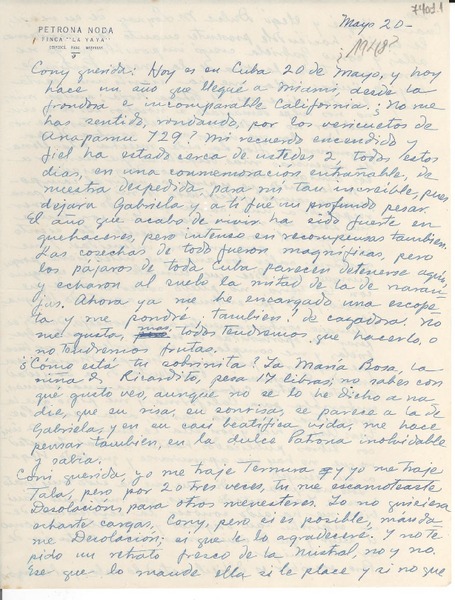 740d.1
PETRONA NODA
FINCA "LA YAYA"
Mayo 20-
¿1948?
Cony querida: Hoy es en Cuba 20 de Mayo, y hoy
hace un año que llegué a Miami, desde la
frondosa e incomparable California. ¿No me
has sentido, rondando, por los vericuetos de
Anapamu 729? Mi recuerdo encendido y
fiel ha estado cerca de ustedes 2, todos estos
dias, en una conmemoración entrañable, de
nuestra despedida, para mí tan increible, pues
dejar a Gabriela y a ti fué un profundo pesar.
El año que acabo de vivir ha sido fuerte en
quehaceres, pero intenso en recompensas tambien.
Las cosechas de todo fueron magnificas, pero
los pájaros de toda Cuba parecen detenerse aquí
y echaron al suelo la mitad de la de naran
jas. Ahora ya me he encargado una escope
ta y me pondré ¡tambien! de cazadora. No
me gusta, mas todos tendremos que hacerlo, o
no tendremos frutas.
¿Cómo está tu sobrinita? La María Rosa, la
niña de Ricardito, pesa 17 libras; no sabes con
que gusto veo, aunque no se lo he dicho a na
die, que su risa, su sonrisa, se parece a la de
Gabriela, y en su casi beatifica vida, me hace
pensar tambien, en la dulce Patrona inolvidable
y sabia.
Coni querida, yo me traje Ternura y yo me traje
Tala, pero por 2 o tres veces, tu me escamoteaste
Desolacion, para otros menesteres. Yo no quisiera
echarte cargas, Cony, pero si es posible, manda
me Desolación; si que te lo agradeceré. Y no te
pido un retrato fresco de la Mistral, no y no.
Ese que lo mande ella si le place y si no que